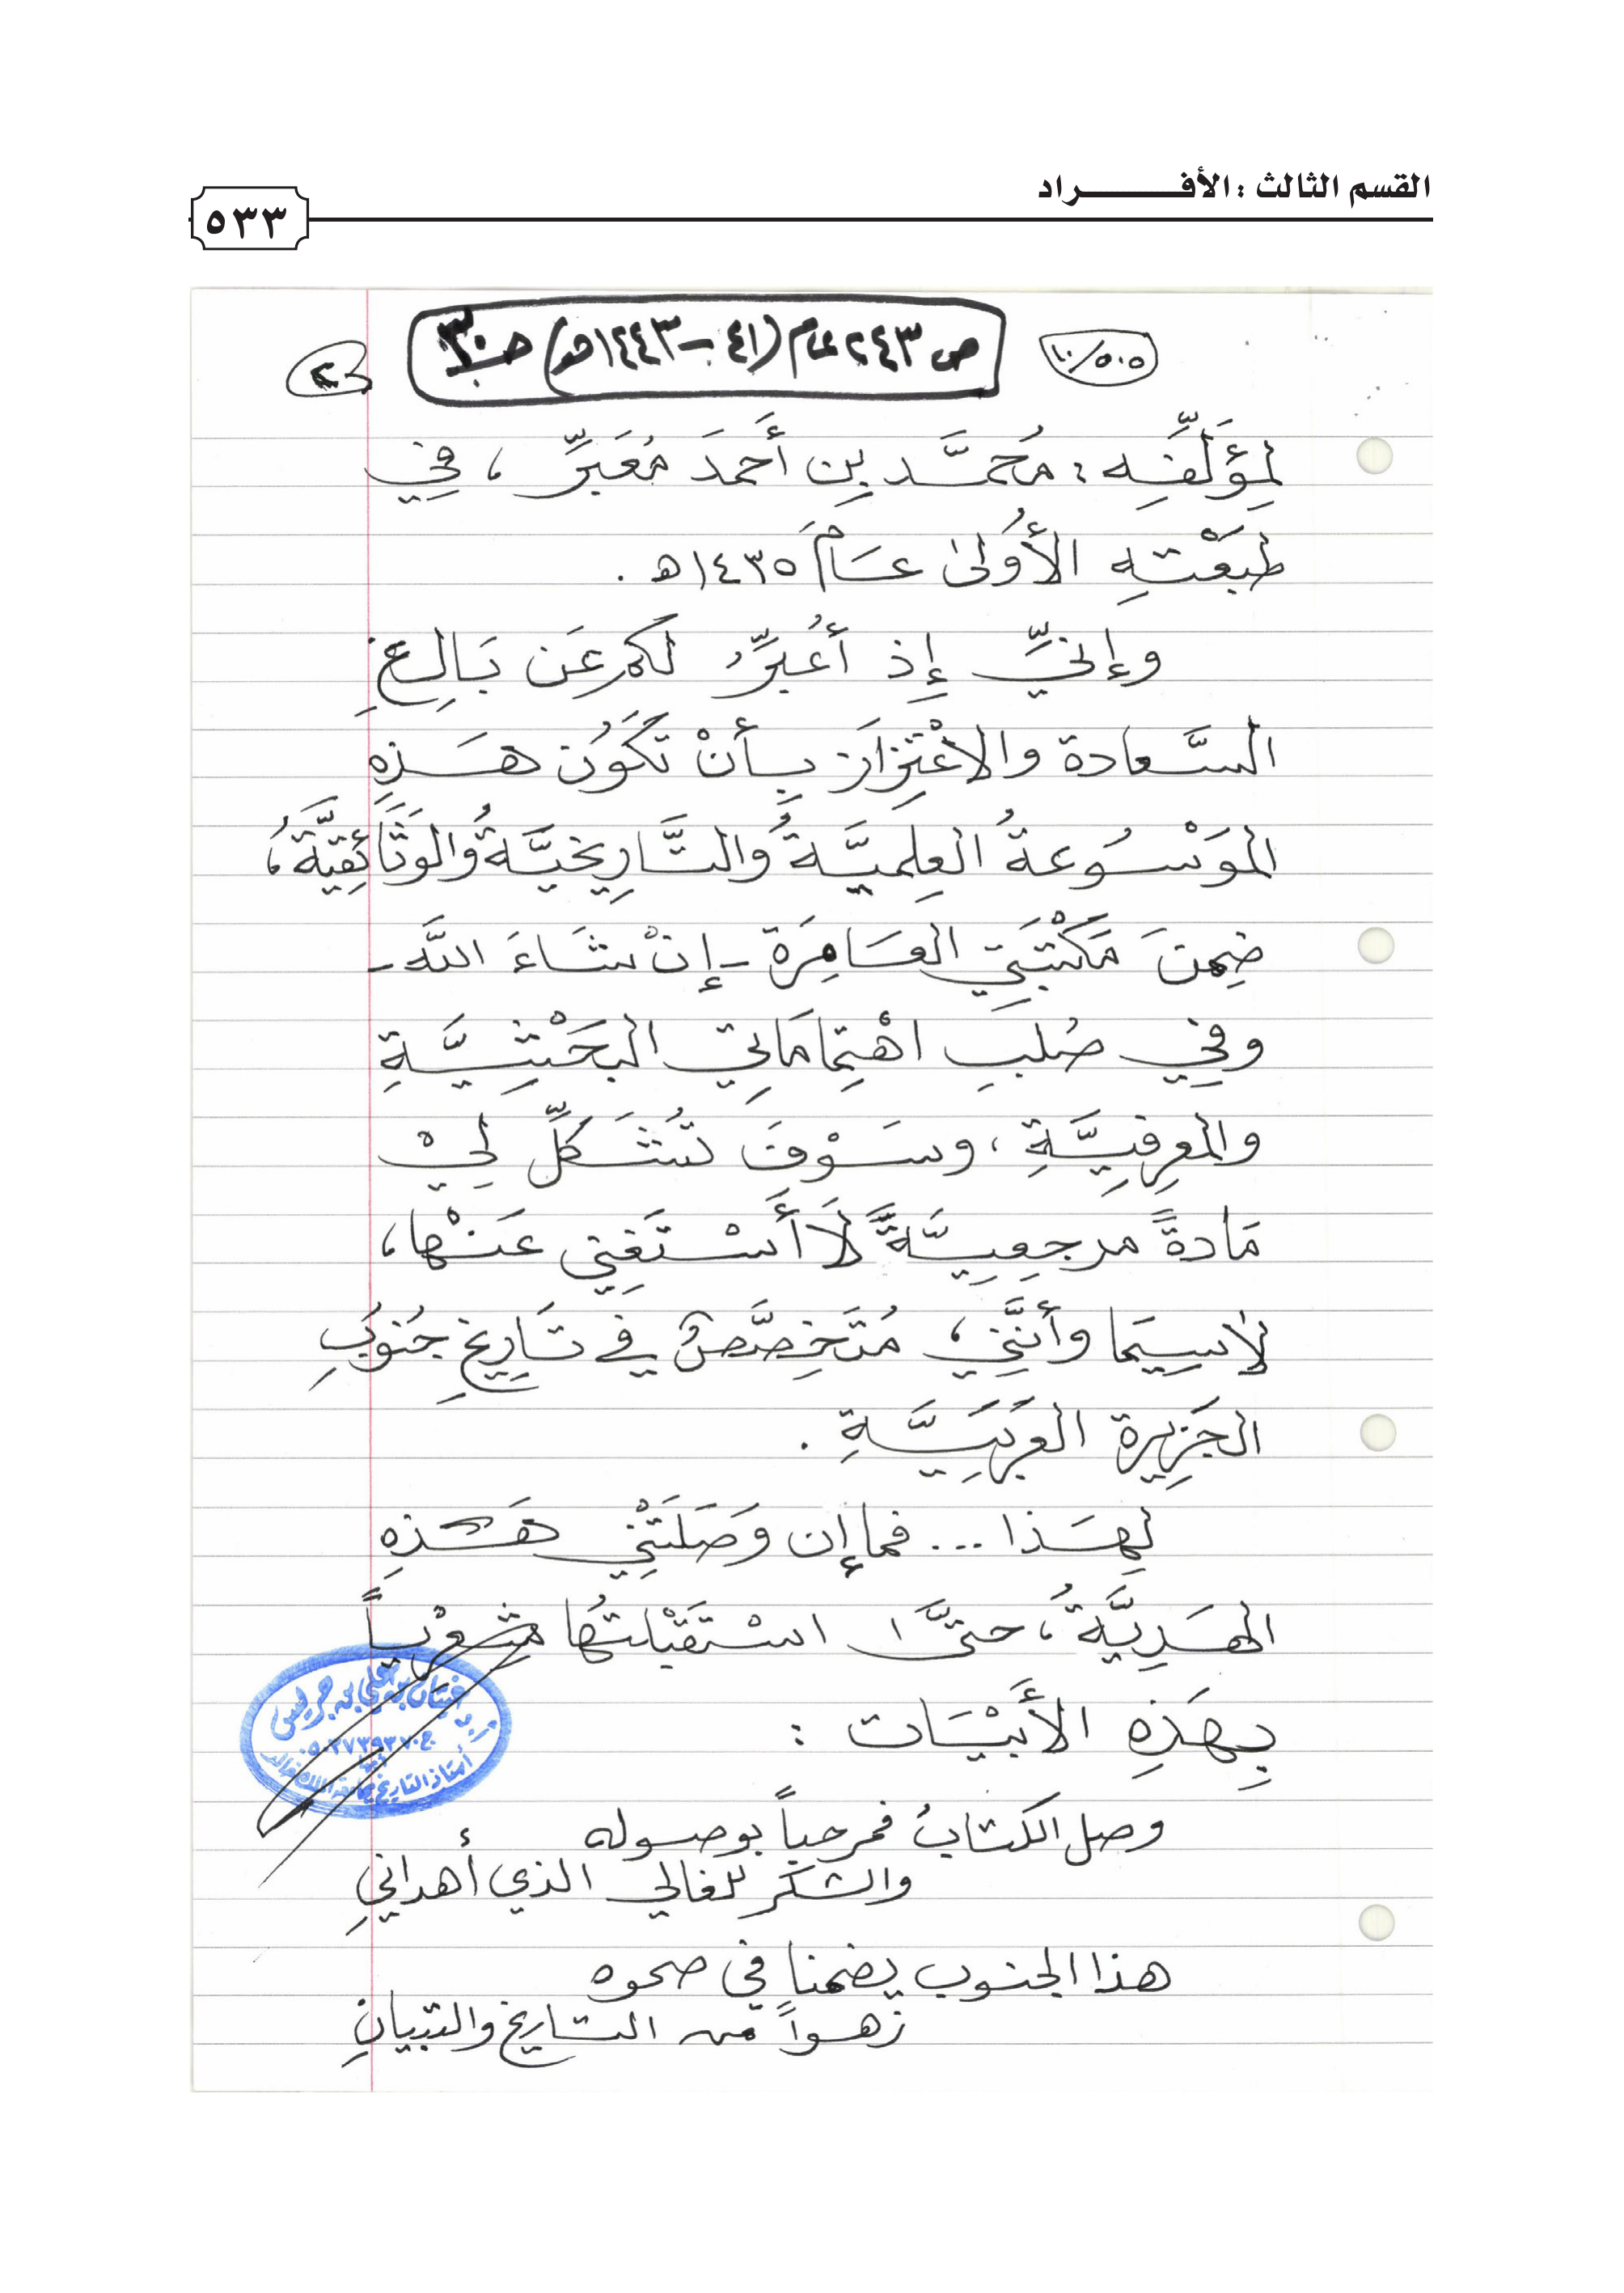 القسم الثالث : الأفـــــراد
٥٣٣
١٠/٥٠٥
ص ٢٤٣ عام (٤١ – ١٤٤٣هـ)
لِمُؤَلِّفِه : مُحمَّـد بِن أَحمدَ مُعَبِّر ، فِي
طَبْعَتِهِ الأُولىٰ عـامَ ١٤٣٥ه .
وإنِّي إِذ أُعَبِّرُ لكم عَن بَالِغِ
السَّعادة والاعْتِزاز بِأنْ تَكُونَ هَـذِهِ
المَوْسُوعةُ العِلمِيَّةُ والتَّاريخيَّةُ والوَثَائِقيَّةُ ،
ضِمنَ مَكْتَبَتِي العَـامِرَة -إنْ شَـاءَ اللَّه-
وفِي صُلبِ اهْتِمَامَاتِي البَحْثِيَّـةِ
والمَعرِفيَّـةِ ، وسَـوْفَ تُشَـكِّل لِيْ
مَادةً مرجعِيَّةً لَا أَسْـتَغنِي عَـنْها ،
لاسِيَما وأنَّنِي ؛ مُتَخصِّصٌ في تَـارِيخِ جُنوبِ
الجَزِيرة العَرَبِيَّـةِ .
لِهـذَا ... فما إن وَصَلَتْنِي هَـذِهِ
الهَـدِيَّةُ ، حتَّىٰ استَقْبَلتُها شِعْرياً
بِهَذِهِ الأَبْيَـات :
وصل الكتابُ فمرحباً بوصوله
والشكر للغالي الذي أهدانِي
هذا الجنوب يضمنا في صحوه
زهـواً من التـاريخ والتبيانِ